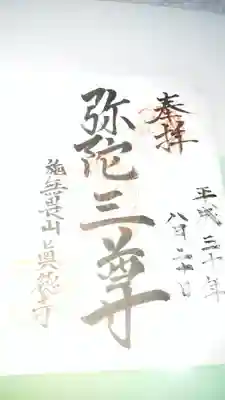 奉拝
平成三十年
八月二十日
弥陀三尊
施無畏山眞德寺